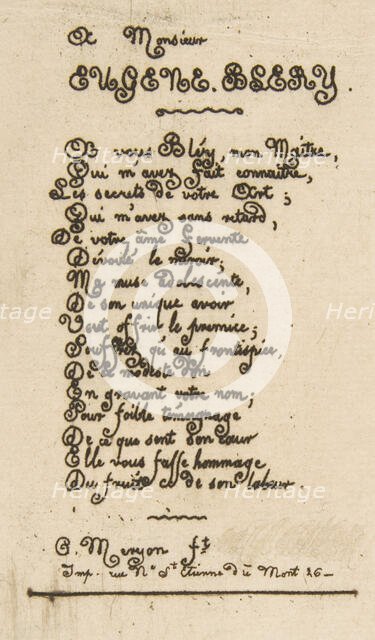 A Monsieur
EUGENE. BLERY.
A vous Bléry, mon Maître,
Qui m'avez fait connaître,
Les secrets de votre Art;
Qui m'avez sans retard,
De votre âme fervente
Dévoilé le miroir,
Ma muse adolescente,
De son unique avoir
Veut offrir le prémice;
Souffrez qu'au frontispice,
De ce modeste don
En gravant votre nom;
Pour foible témoignage
De ce que sent son cœur
Elle vous fasse hommage
Du fruit de son labeur.
C. Meryon ft
Imp. rue Ne St Etienne du Mont 26
Heritage
Images